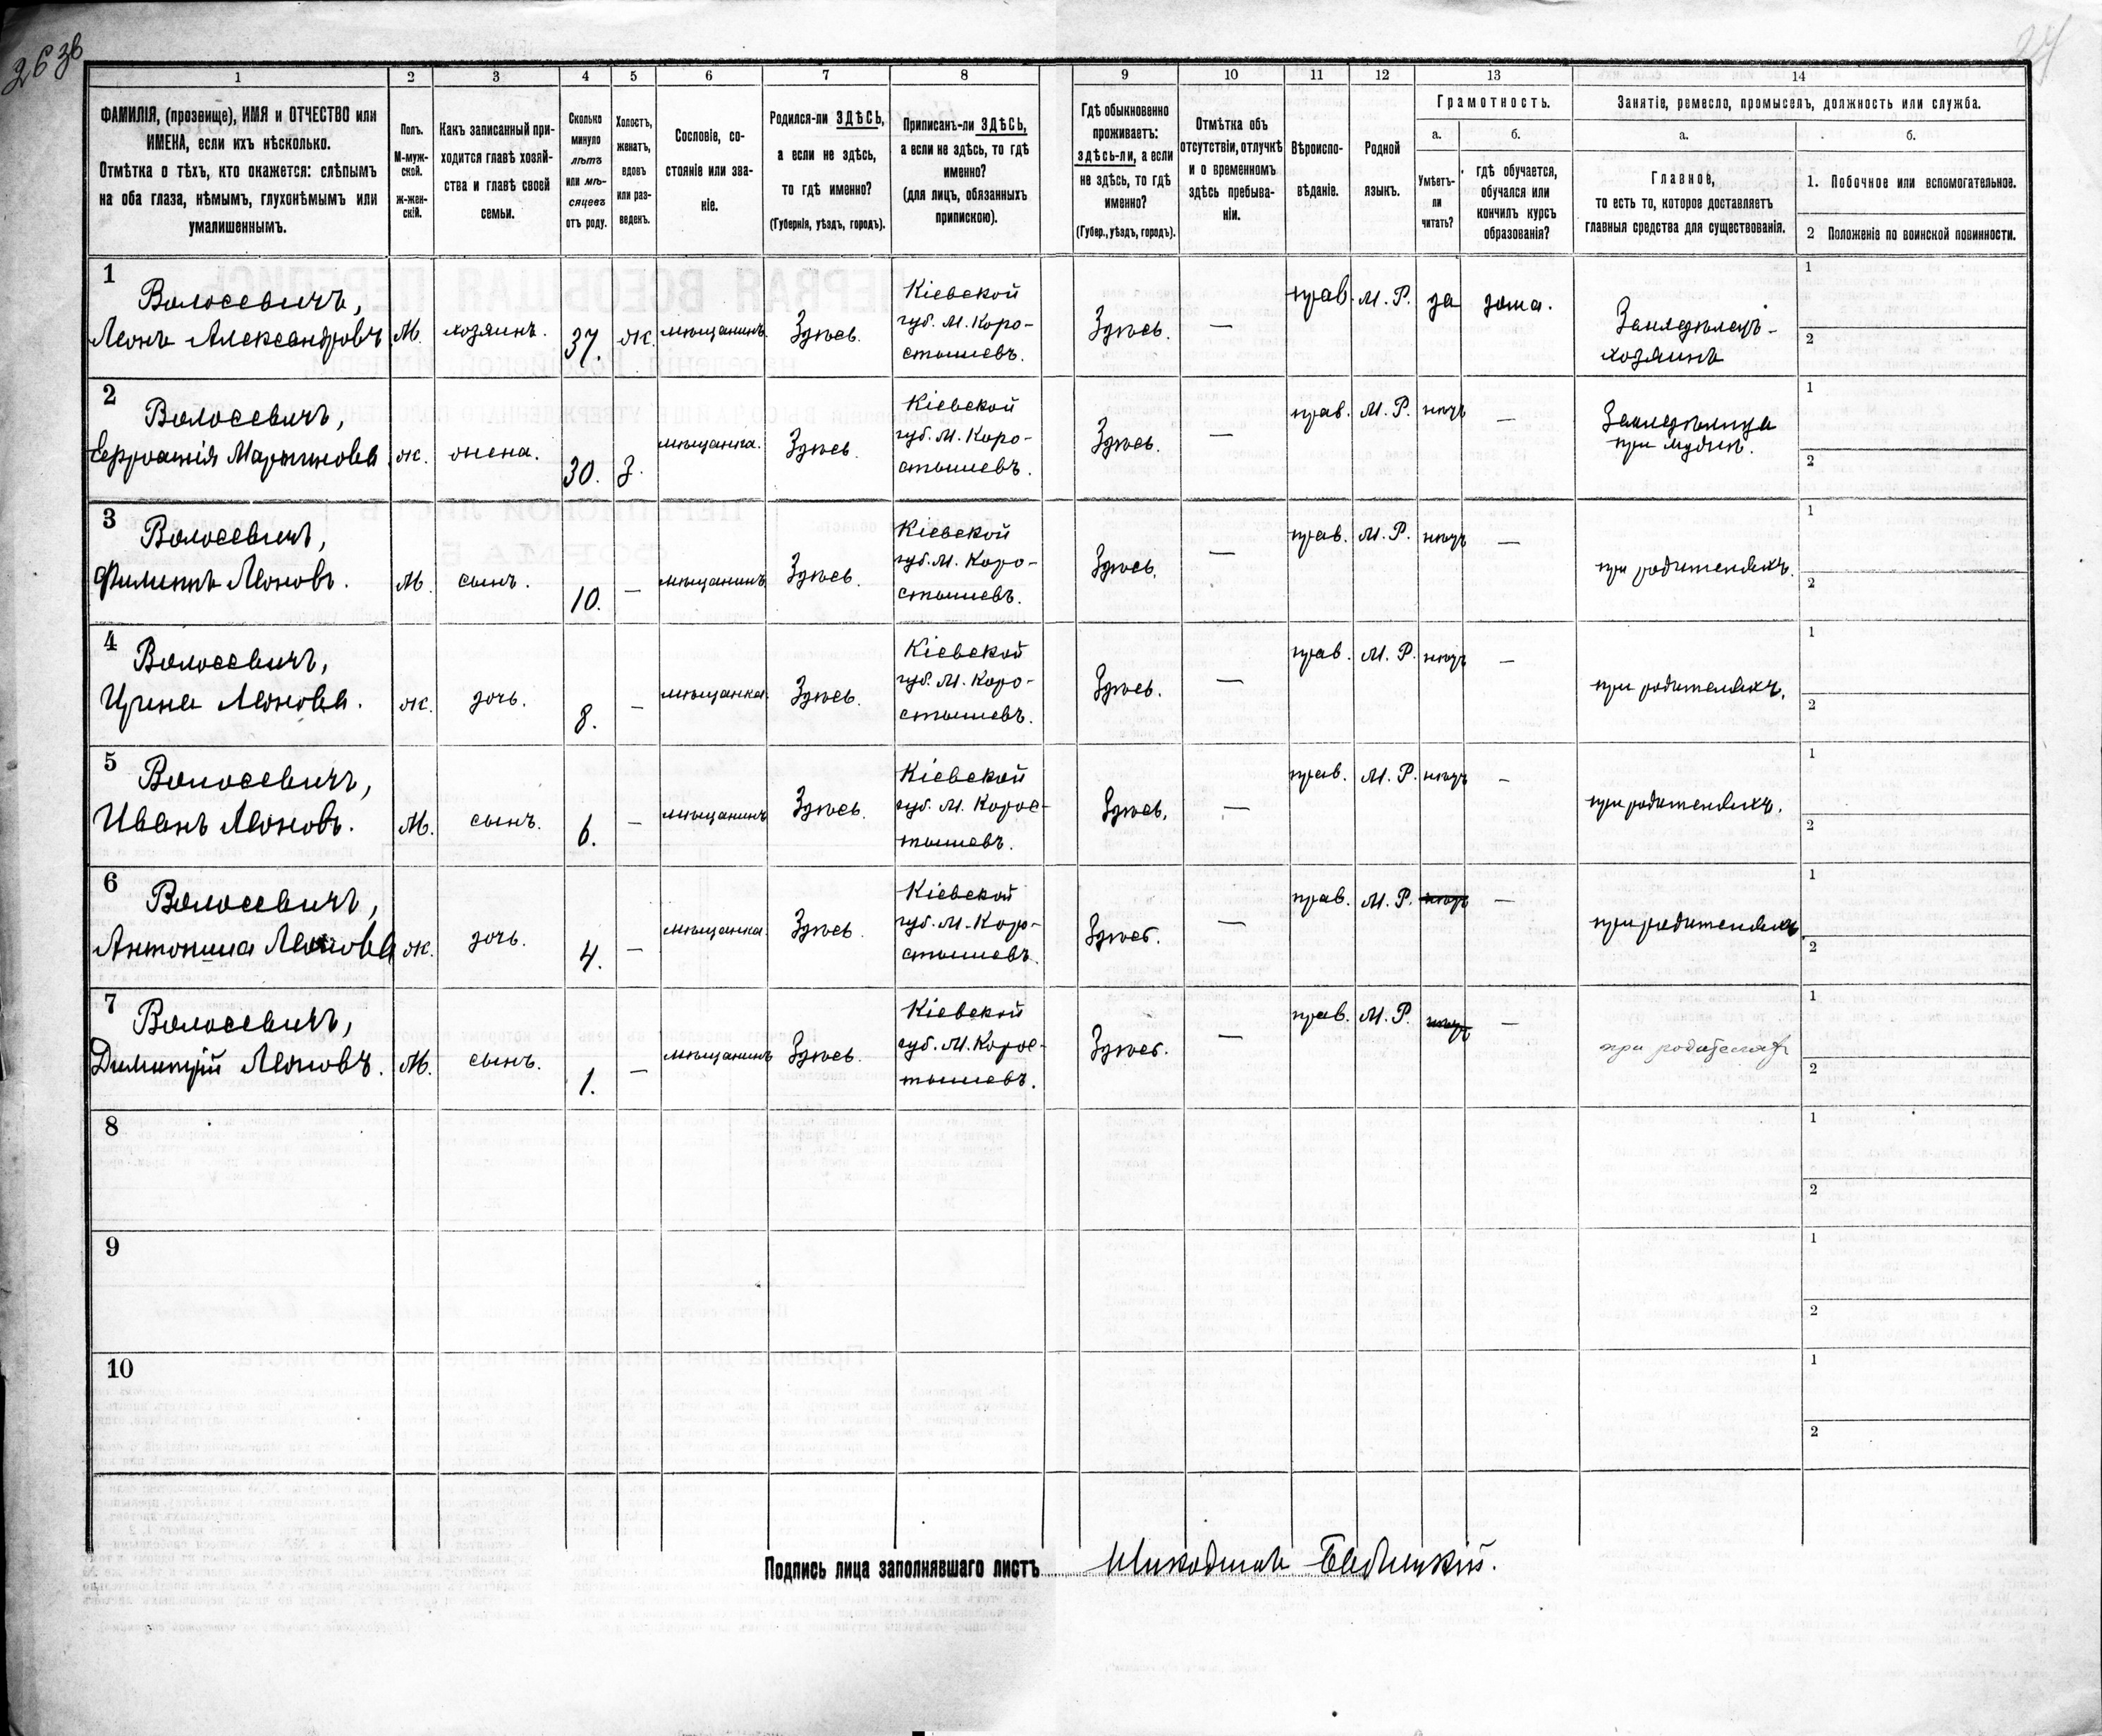 26 зв
27
1 2 3 4 5 6 7 8 9 10 11 12 13 14
ФАМИЛІЯ, (прозвище), ИМЯ и ОТЧЕСТВО или
ИМЕНА, если ихъ нѣсколько.
Отмѣтка о тѣхъ, кто окажется: слѣпымъ
на оба глаза, нѣмымъ, глухонѣмымъ или
умалишеннымъ.
Полъ.
М-муж-
ской.
ж-жен-
скій.
Какъ записанный при-
ходится главѣ хозяй-
ства и главѣ своей
семьи.
Сколько
минуло
лѣтъ
или мѣ-
сяцевъ
отъ роду.
Холостъ,
женатъ,
вдовъ
или раз-
веденъ.
Сословіе, со-
стояніе или зва-
ніе.
Родился-ли ЗДѢСЬ,
а если не здѣсь,
то гдѣ именно?
(Губернія, уѣздъ, городъ).
Приписанъ-ли ЗДѢСЬ,
а если не здѣсь, то гдѣ
именно?
(для лицъ, обязанныхъ
припискою).
Гдѣ обыкновенно
проживаетъ:
здѣсь-ли, а если
не здѣсь, то гдѣ
именно?
(Губер., уѣздъ, городъ).
Отмѣтка объ
отсутствіи, отлучкѣ
и о временномъ
здѣсь пребыва-
ніи.
Вѣроиспо-
вѣданіе.
Родной
языкъ.
Грамотность.
а. б.
Умѣетъ-
ли
читать?
гдѣ обучается,
обучался или
кончилъ курсъ
образованія?
Занятіе, ремесло, промыселъ, должность или служба.
а. б.
Главное,
то есть то, которое доставляетъ
главныя средства для существованія.
1. Побочное или вспомогательное.
2 Положеніе по воинской повинности.
1
Волосевичъ,
Леонъ Александровъ
М. хозяинъ. 37. ж. мѣщанинъ. Здѣсь.
Кіевской
губ. М. Коро-
стышевъ.
Здѣсь. — прав. М. Р. да дома.
Земледѣлецъ-
хозяинъ
1
2
2
Волосевичъ,
Мартинова
ж. жена. 30. З. мѣщанка. Здѣсь.
Кіевской
губ. М. Коро-
стышевъ.
Здѣсь. — прав. М. Р. нѣтъ —
Земледѣлица
при мужѣ.
1
2
3
Волосевичъ,
Филиппъ Леоновъ.
М. сынъ. 10. — мѣщанинъ Здѣсь.
Кіевской
губ. М. Коро-
стышевъ.
Здѣсь. — прав. М. Р. нѣтъ —
при родителяхъ.
1
2
4
Волосевичъ,
Ирина Леонова.
ж. дочь. 8. — мѣщанка. Здѣсь.
Кіевской
губ. М. Коро-
стышевъ.
Здѣсь. — прав. М. Р. нѣтъ —
при родителяхъ.
1
2
5
Волосевичъ,
Иванъ Леоновъ.
М. сынъ. 6. — мѣщанинъ Здѣсь.
Кіевской
губ. М. Корос-
тышевъ.
Здѣсь. — прав. М. Р. нѣтъ —
при родителяхъ.
1
2
6
Волосевичъ,
Антонина Леонова
ж. дочь. 4. — мѣщанка. Здѣсь.
Кіевской
губ. М. Коро-
стышевъ.
Здѣсь. — прав. М. Р. нѣтъ —
при родителяхъ.
1
2
7
Волосевичъ,
Димитрій Леоновъ.
М. сынъ. 1. — мѣщанинъ Здѣсь.
Кіевской
губ. М. Корос-
тышевъ.
Здѣсь. — прав. М. Р. нѣтъ —
при родителях
1
2
8
1
2
9
1
2
10
1
2
Подпись лица заполнявшаго листъ